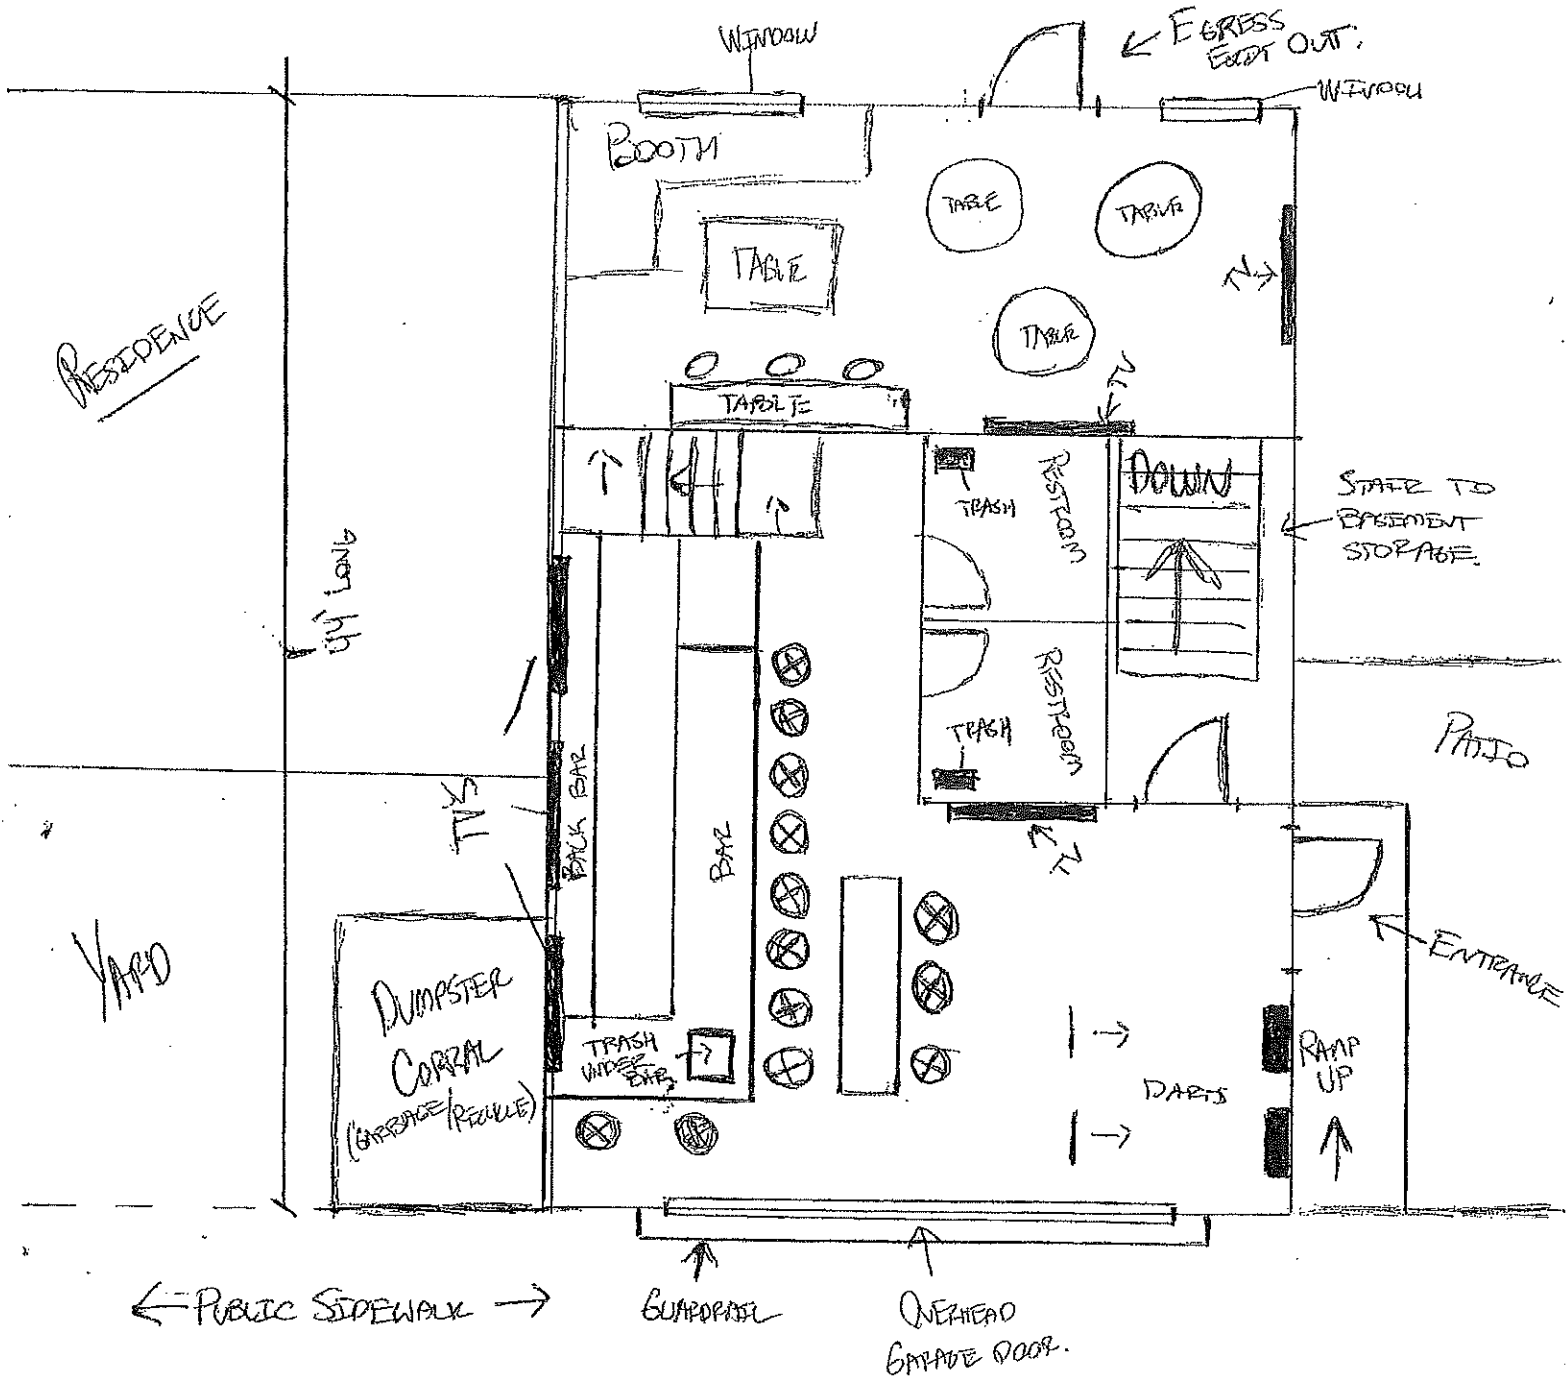 WINDOW
EGRESS
EXIT OUT.
WINDOW
BOOTH
TABLE
TABLE
TABLE
TABLE
TV
TV
TABLE
RESIDENCE
44' LONG
TRASH
RESTROOM
DOWN
STAIR TO
BASEMENT
STORAGE.
RESTROOM
TRASH
TV
PATIO
TV'S
BACK BAR
BAR
ENTRANCE
YARD
DUMPSTER
CORRAL
(GARBAGE/RECYCLE)
TRASH
UNDER
BAR
DARTS
RAMP
UP
PUBLIC SIDEWALK
GUARDRAIL
OVERHEAD
GARAGE DOOR.